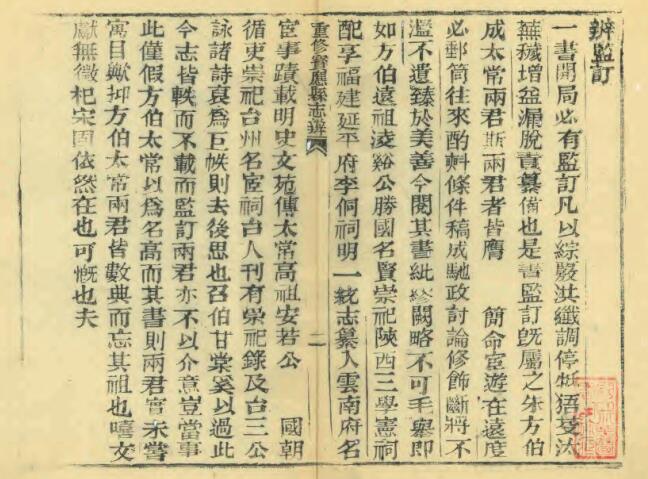 辨監訂
一書開局必有監訂凡以綜嚴洪纖調停牴牾芟汰
蕪穢增益漏脫責纂備也是書監訂旣屬之朱方伯
成太常兩君斯兩君者皆膺 簡命宦遊在遠度
必郵筒往來酌斠條件稿成馳政討論修飾斷將不
濫不遺臻於美善今閱其書紕繆闕略不可毛舉即
如方伯遠祖淩谿公勝國名賢崇祀陝西三學憲祠
配享福建延平府李侗祠明一統志纂入雲南府名
重修寶應縣志辨
二
宦事蹟載明史文苑傳太常高祖安若公 國朝
循吏崇祀台州名宦祠台人刊有崇祀錄及台三公
詠諸詩裒爲巨帙則去後思也召伯甘棠奚以過此
今志皆軼而不載而監訂兩君亦不以介意豈當事
此僅假方伯太常以爲名高而其書則兩君實未嘗
寓目歟抑方伯太常兩君皆數典而忘其祖也嘻文
獻無徵杞宋固依然在也可慨也夫